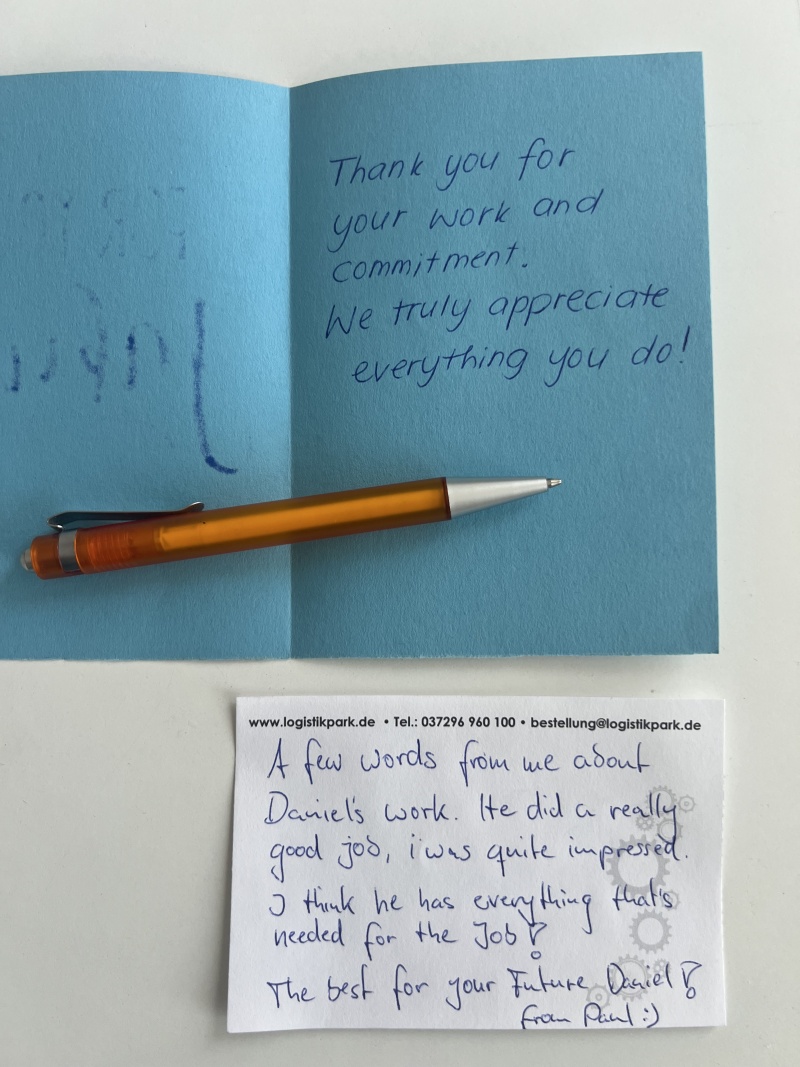 Thank you for
your work and
commitment.
We truly appreciate
everything you do!
www.logistikpark.de • Tel.: 037296 960 100 • bestellung@logistikpark.de
A few words from me about
Daniel's work. He did a really
good job, i was quite impressed.
I think he has everything that's
needed for the Job!
The best for your Future Daniel!
from Paul :)